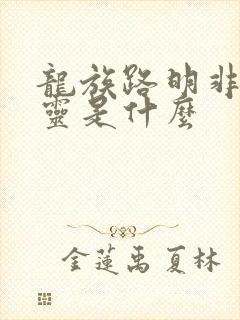 龍族路明非
靈是什麼
金蓮禹夏林